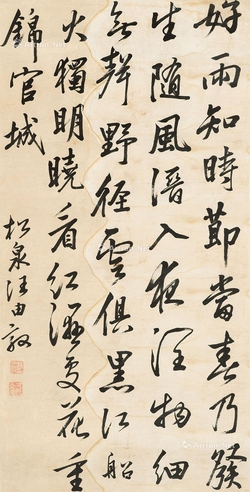 好雨知時節當春乃發
生隨風潛入夜潤物細
無聲野徑雲俱黑江船
火獨明曉看紅濕處花重
錦官城
松泉汪由敦